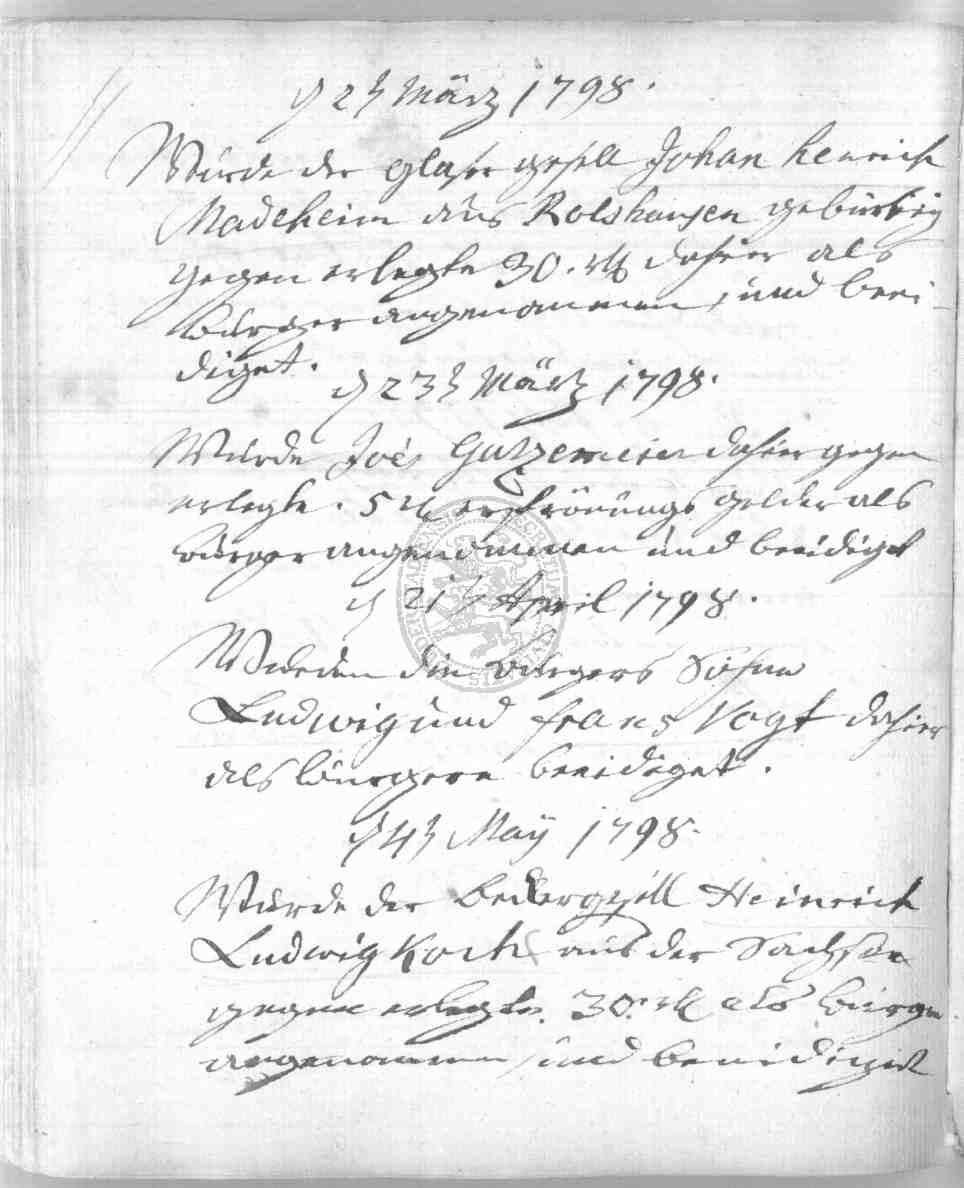 d 2t März 1798.
Wurde der glaser gesell Johan Henrich
Madeheim aus Rolshausen gebürtig
gegen erlegte 30. rth dahier als
burger angenommen, und beei-
diget.
d 23t März 1798.
Wurde Joës Gutzemeier dahier gegen
erlegte. 5 rth gelder als
burger angenommen und beeidiget
d 21t April 1798.
Wurden die burgers Söhne
Ludwig und Frans Vogt dahier
als burgere beeidiget.
d 4t Maÿ 1798.
Wurde der beckergesell Heinrich
Ludwig Koch aus der Sachsen
gegen erlegte 30. rth als burger
angenommen, und beeidiget